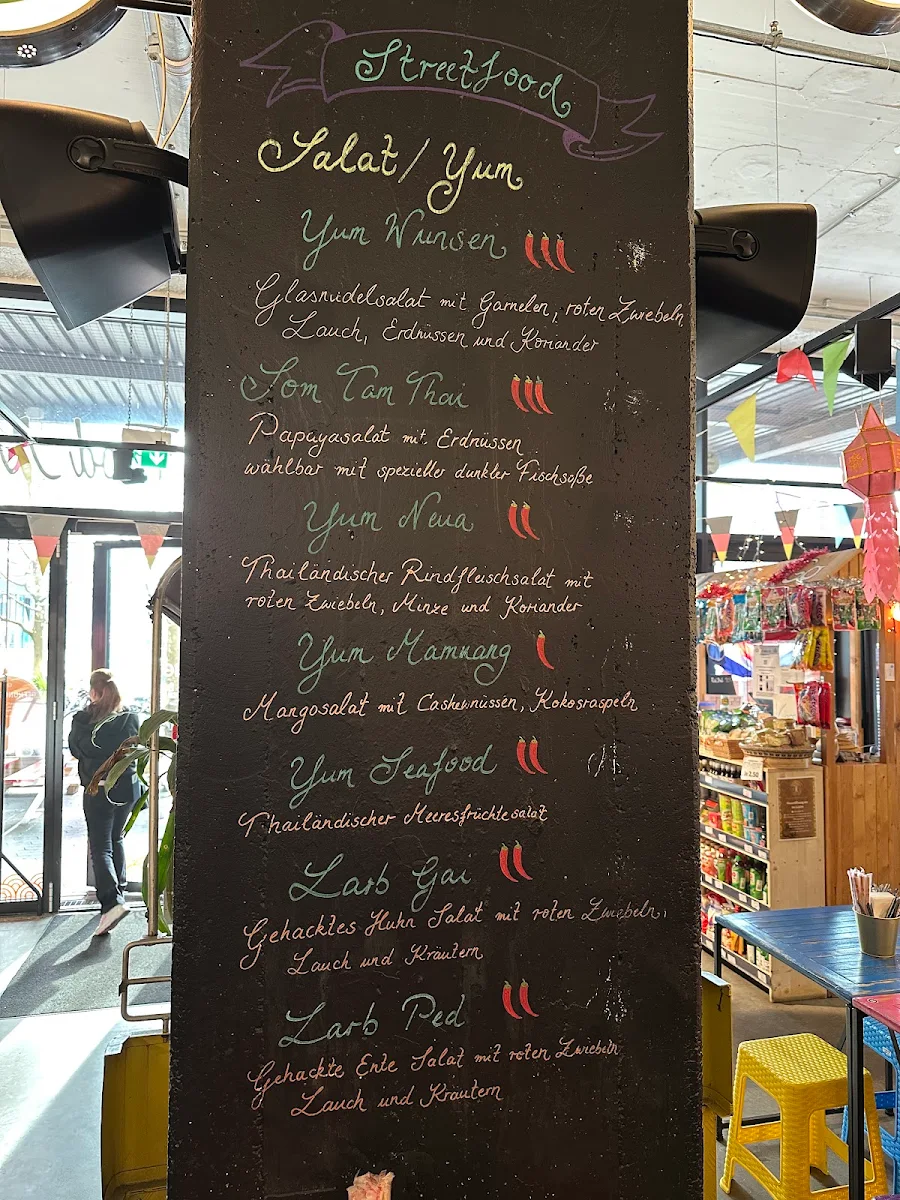 Streetfood
Salat / Yum
Yum Wunsen
Glasnudelsalat mit Garnelen, roten Zwiebeln
Lauch, Erdnüssen und Koriander
Som Tam Thai
Papayasalat mit Erdnüssen
wählbar mit spezieller dunkler Fischsoße
Yum Neua
Thailändischer Rindfleischsalat mit
roten Zwiebeln, Minze und Koriander
Yum Mamuang
Mangosalat mit Cashewnüssen, Kokosraspeln
Yum Seafood
Thailändischer Meeresfrüchtesalat
Larb Gai
Gehacktes Huhn Salat mit roten Zwiebeln,
Lauch und Kräutern
Larb Ped
Gehackte Ente Salat mit roten Zwiebeln
Lauch und Kräutern